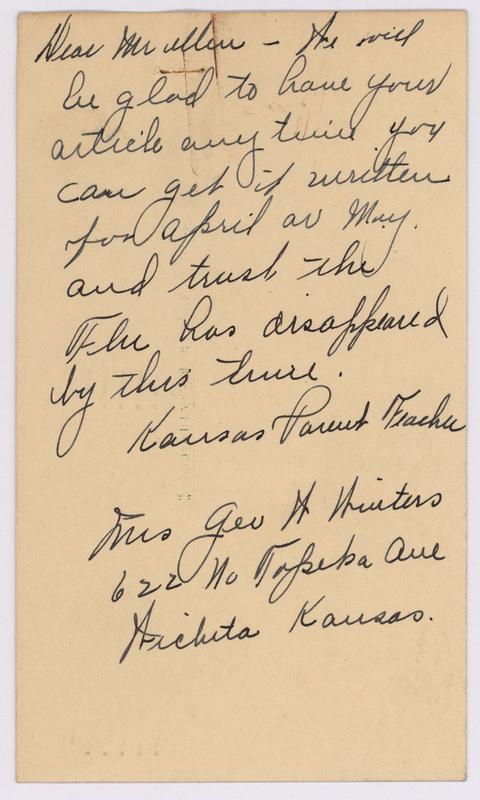 Dear Mr Allen - We will
be glad to have your
article any time you
can get it written
for April or May.
and trust the
Flu has disappeared
by this time.
Kansas Parent Teacher
Mrs Geo H Winters
622 No Topeka Ave
Wichita Kansas.